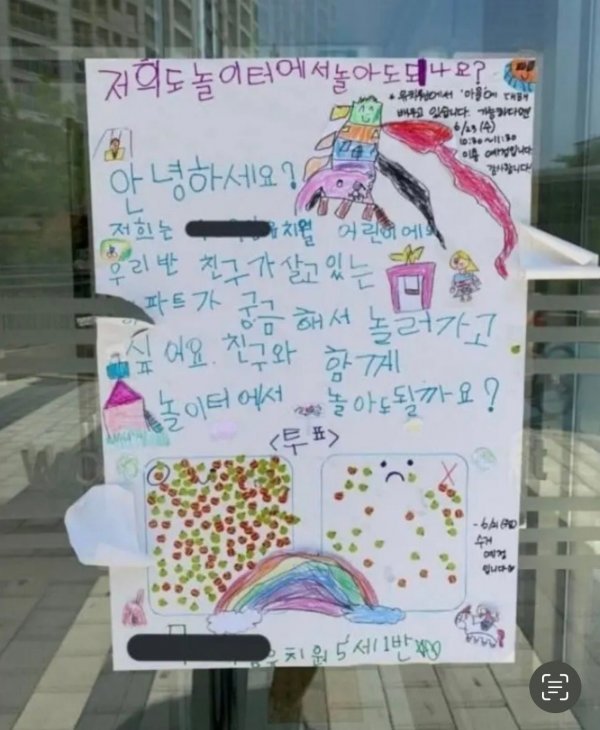 저희도 놀이터에서 놀아도 되나요?
* 유치원에서 '마을'에 대해
배우고 있습니다. 가능하다면
6/23 (수)
10:30~11:30
이용 예정입니다
감사합니다!
안녕하세요?
저희는 유치원 어린이에요
우리반 친구가 살고 있는
파트가 궁금해서 놀러가고
싶어요. 친구와 함께
놀이터에서 놀아도 될까요?
<투표>
O X
- 6/21 (월)
수거
예정
입니다
유치원 5세 1반